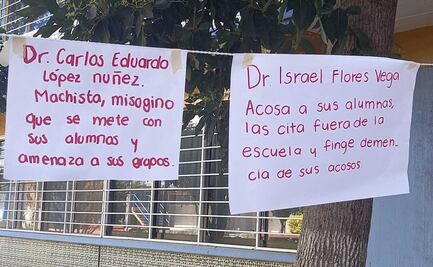 Dr. Carlos Eduardo
López nuñez.
Machista, misogino
que se mete con
sus alumnas y
amenaza a sus grupos.
Dr. Israel Flores Vega
Acosa a sus alumnas,
las cita fuera de la
escuela y finge demen-
cia de sus acosos